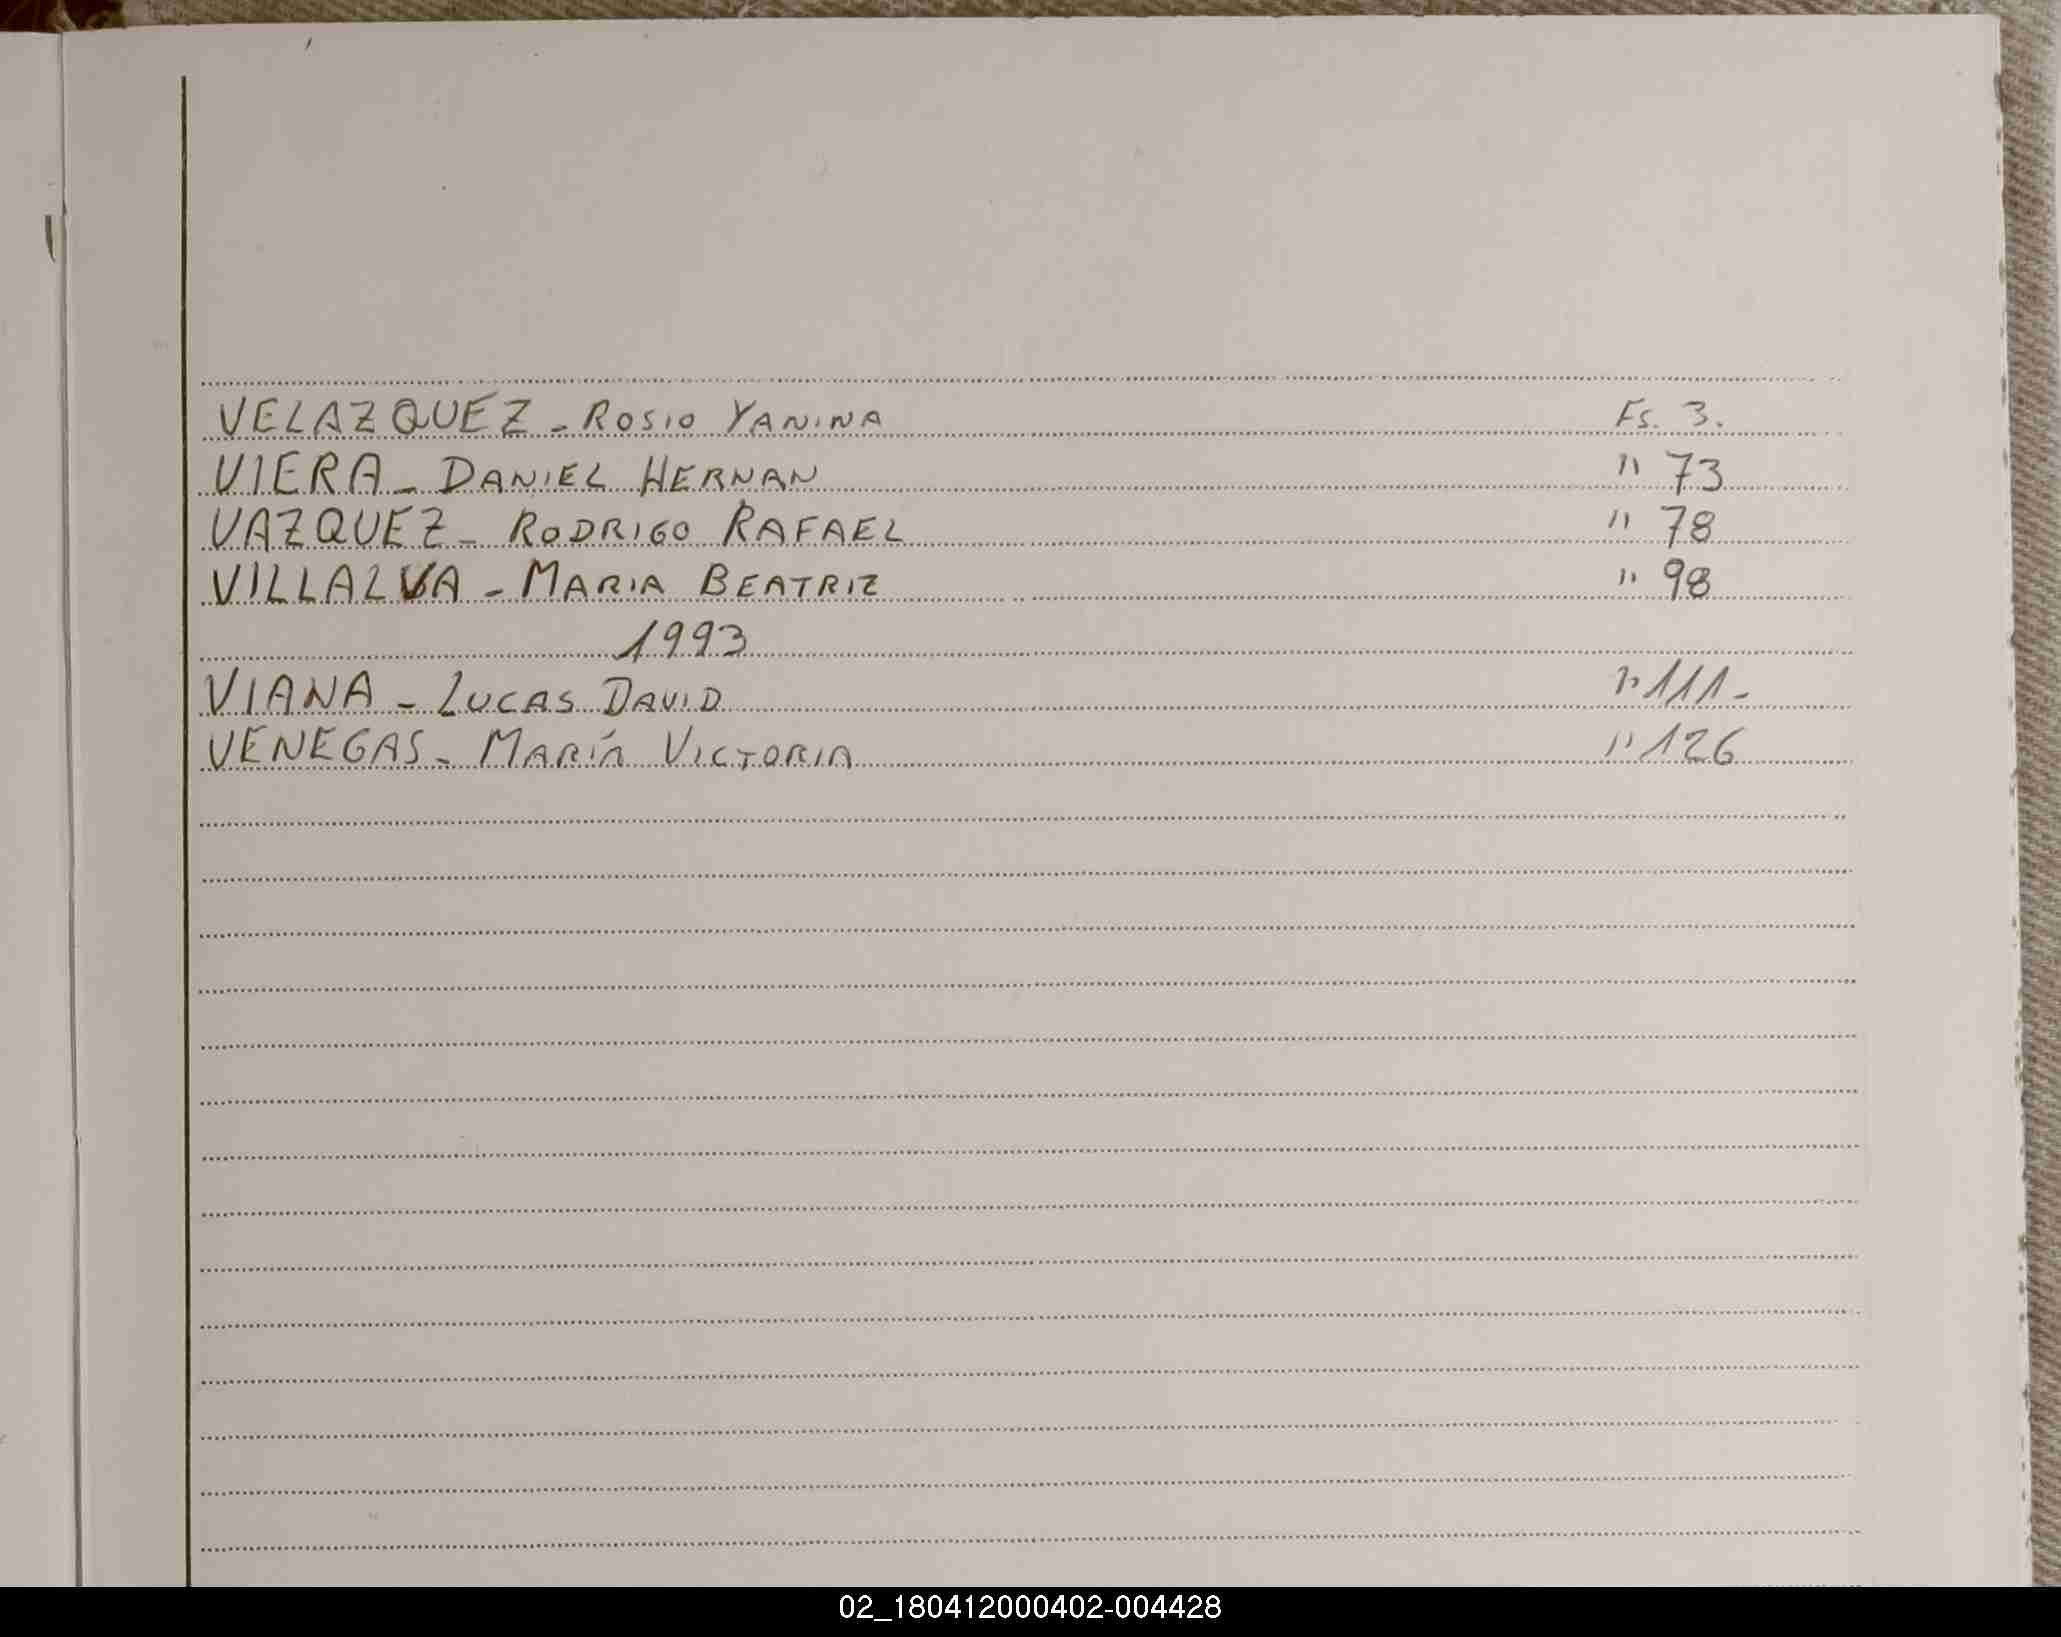 VELAZQUEZ - ROSIO YANINA Fs. 3.
VIERA - DANIEL HERNAN " 73
VAZQUEZ - RODRIGO RAFAEL " 78
VILLALVA - MARIA BEATRIZ " 98
1993
VIANA - LUCAS DAVID " 111-
VENEGAS - MARÍA VICTORIA " 126
02_180412000402-004428